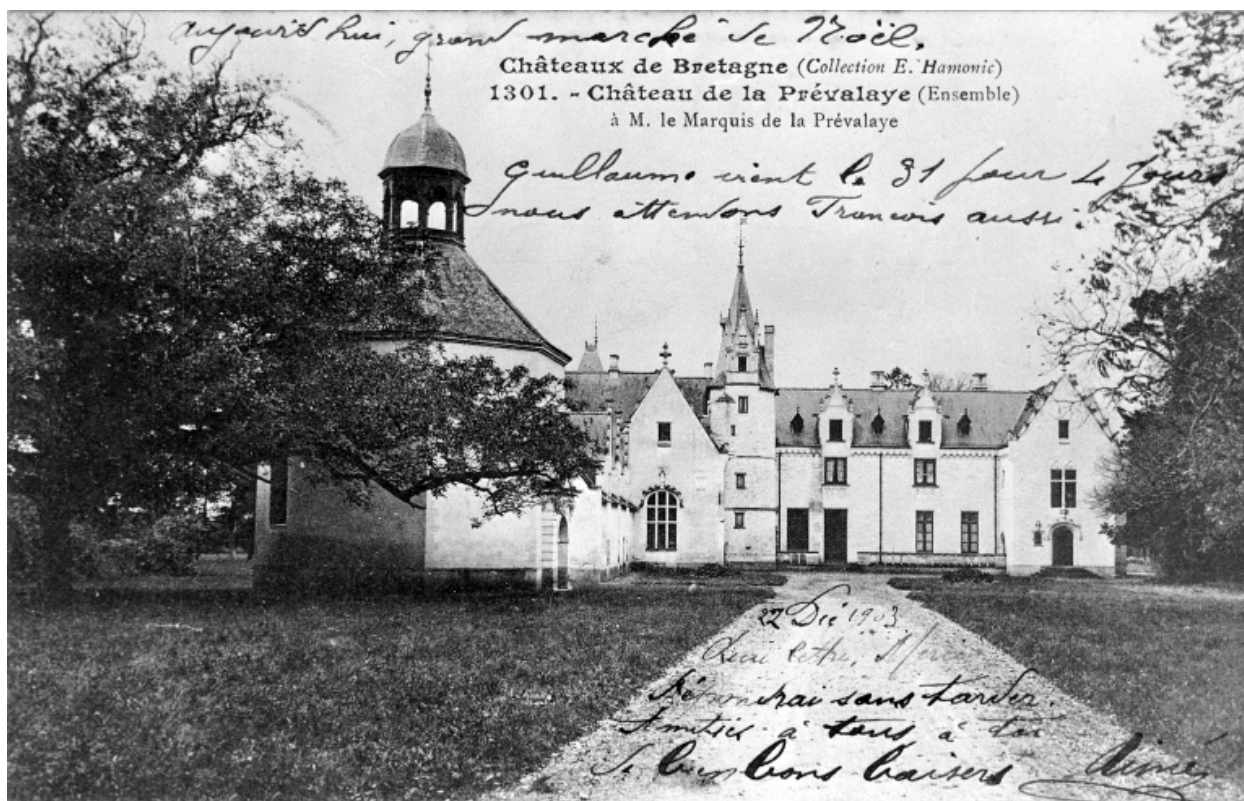 aujourd'hui, grand marché de Noël.
Châteaux de Bretagne (Collection E. Hamonic)
1301. - Château de la Prévalaye (Ensemble)
à M. le Marquis de la Prévalaye
Guillaume vient le 31 pour 4 jours
nous attendons Francois aussi.
22 Déc 1903
lettre,
Répondrai sans tarder.
Amitiés à tous à toi
de bien bons baisers Aimé